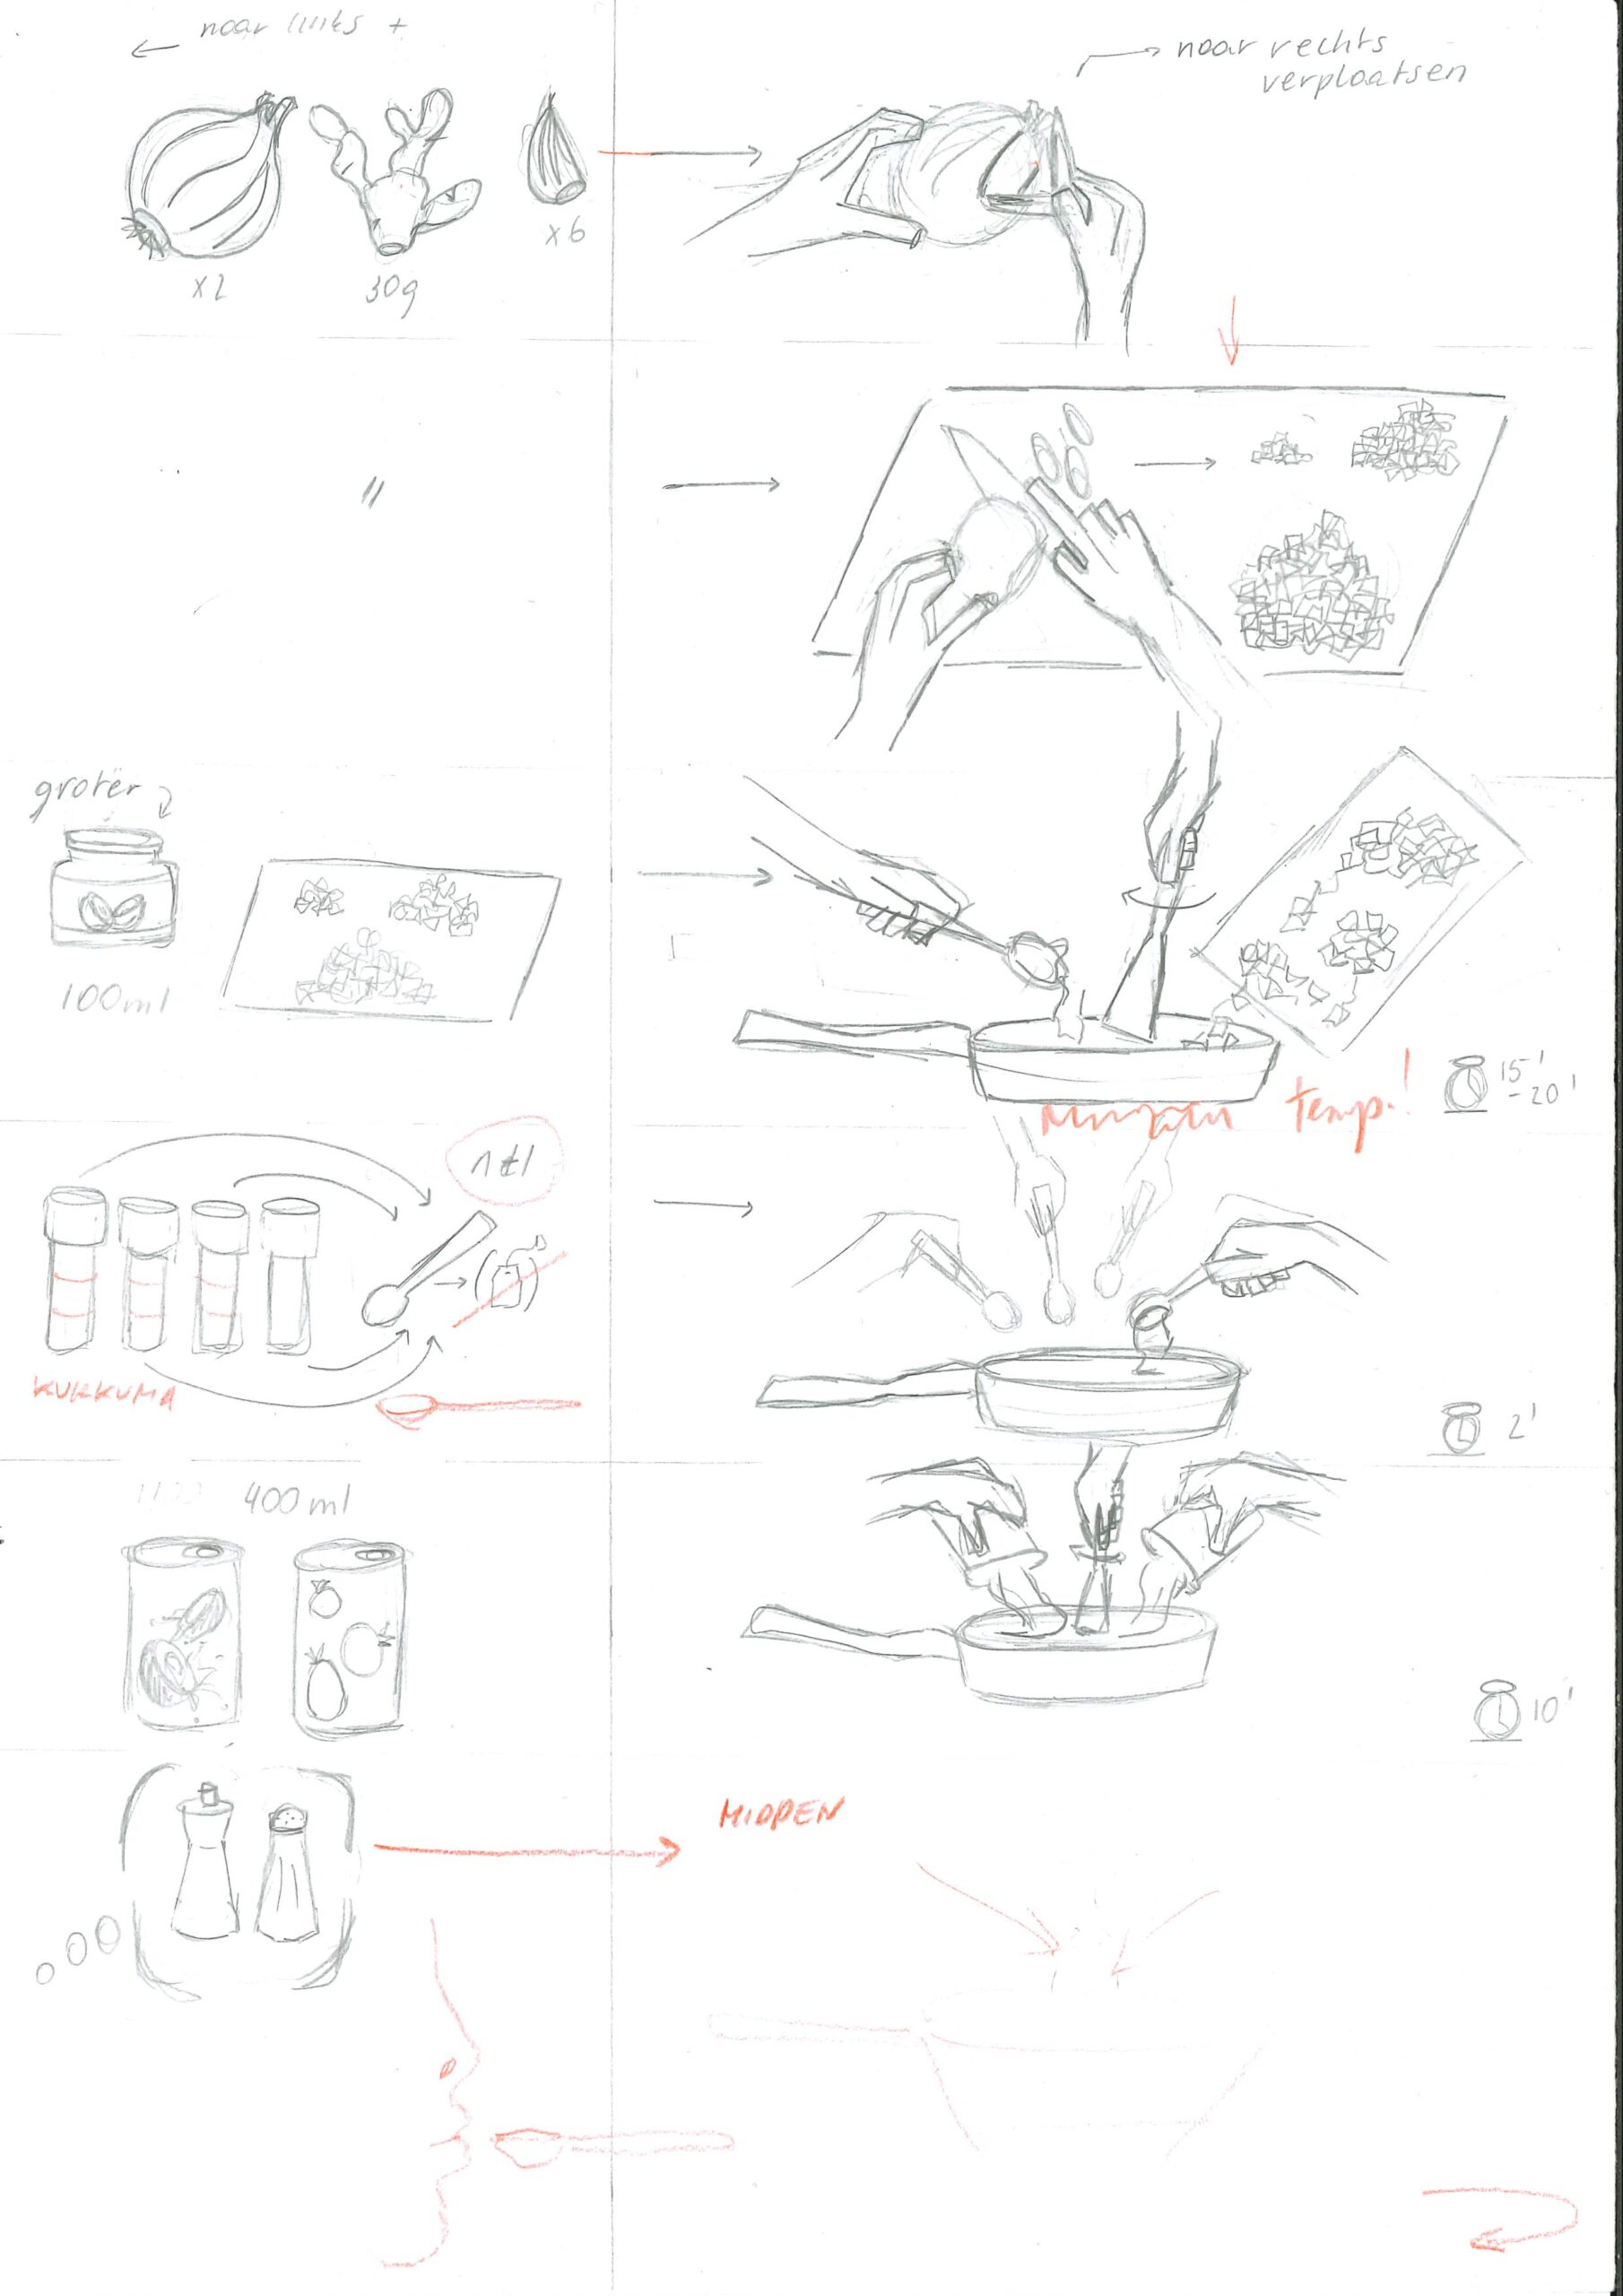 ← naar links +
→ naar rechts
verplaatsen
x2
30g
x6
"
groter
100ml
15'
-20'
temp.!
1 tl
KURKUMA
2'
400ml
10'
MIDDEN